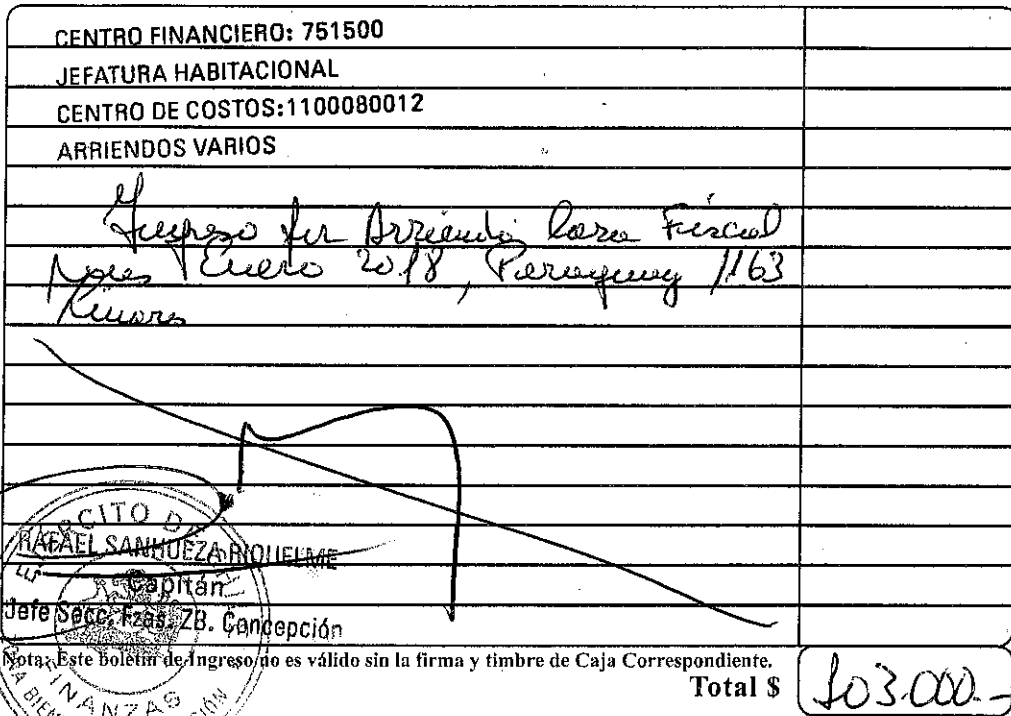 CENTRO FINANCIERO: 751500
JEFATURA HABITACIONAL
CENTRO DE COSTOS:1100080012
ARRIENDOS VARIOS
Ingreso por Arriendo Casa Fiscal
Mes Enero 2018, Paraguay 1163
Linares
EJERCITO DE
RAFAEL SANHUEZA RIQUELME
Capitán
Jefe Secc. Fzas. ZB. Concepción
Nota: Este boletín de Ingreso no es válido sin la firma y timbre de Caja Correspondiente.
FINANZAS
Total $ 103.000.-